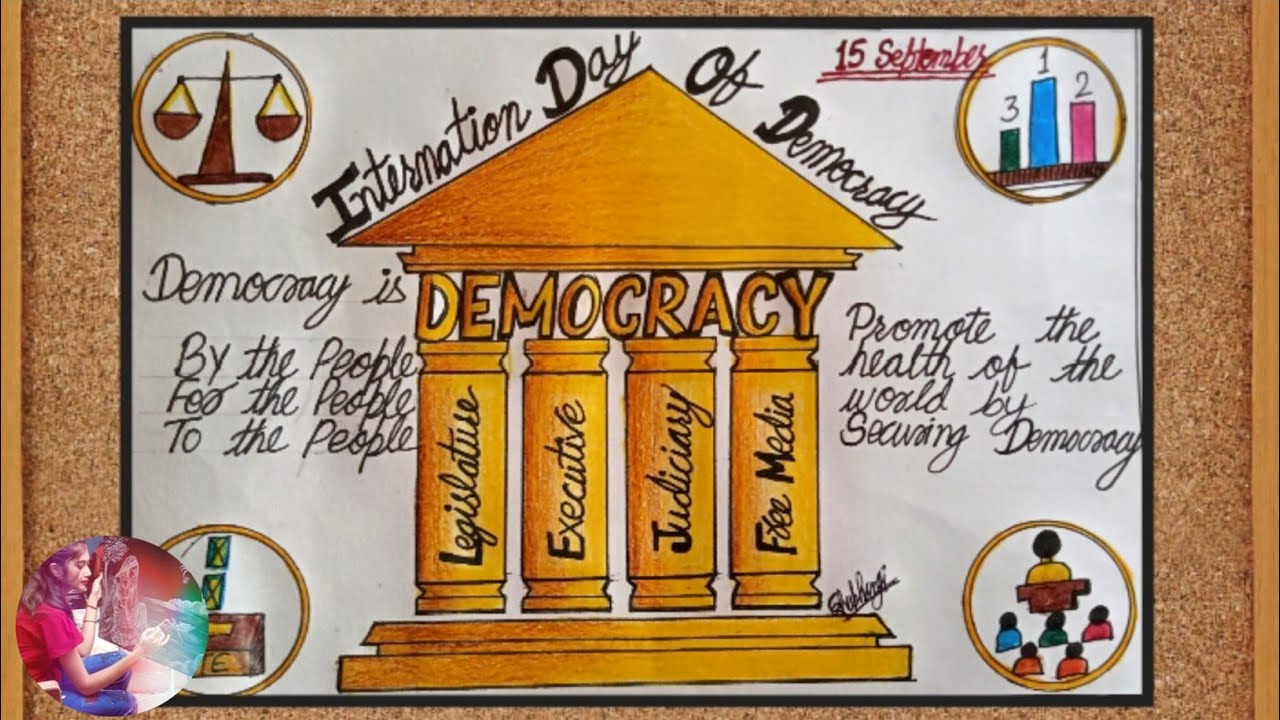 Internation Day Of Democracy
15 September
3 1 2
Democracy is
By the People
For the People
To the People
DEMOCRACY
Promote the
health of the
world by
Securing Democracy
Legislature
Executive
Judiciary
Free Media
TE